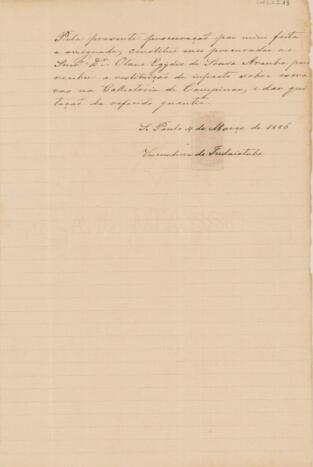 Pela presente procuração por mim feita
e assignada, constituo meu procurador ao
Snr. Dr. Olavo Egydio de Souza Aranha para
receber a restituição de imposto sobre escra
vos na Collectoria de Campinas, e dar qui
tação da referida quantia.
S. Paulo 4 de Março de 1886
Viscondessa de Indaiatuba